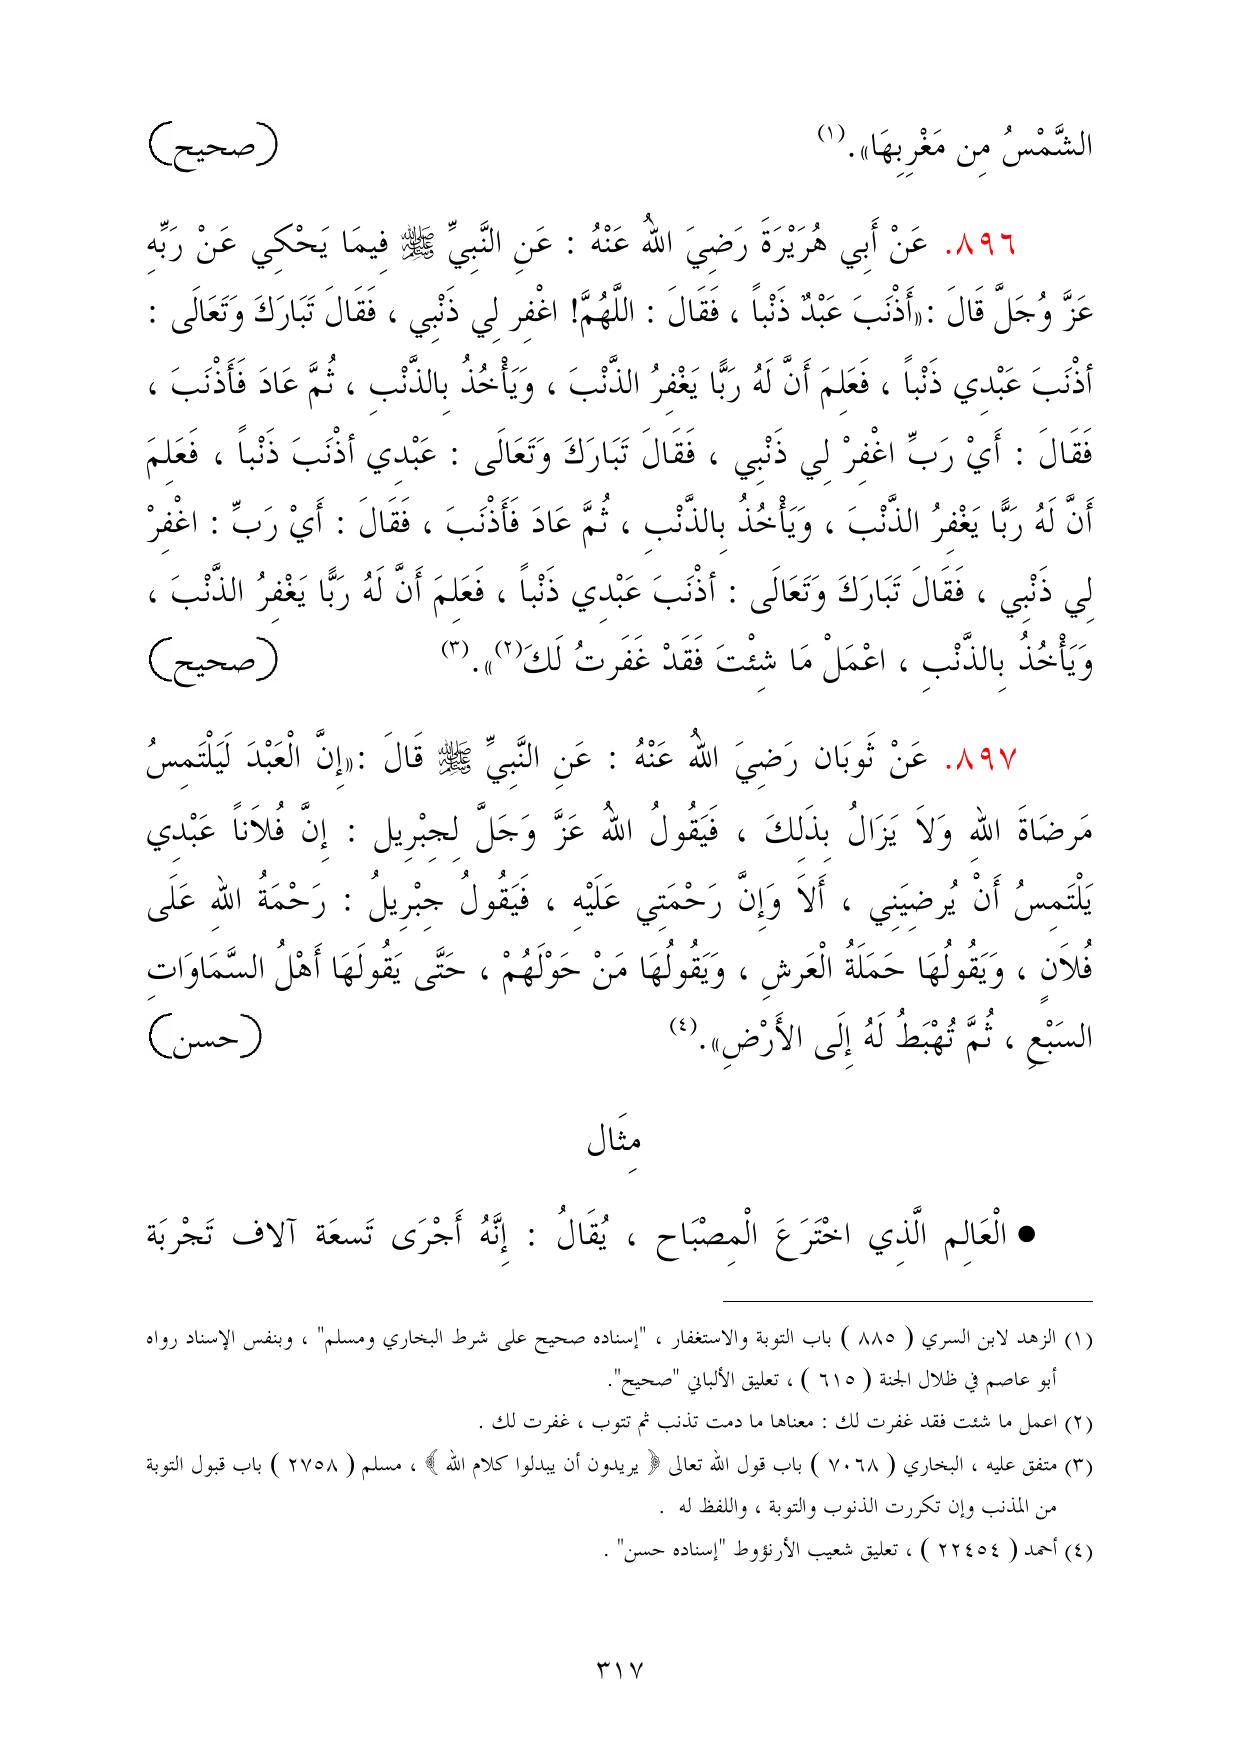 الشَّمْسُ مِن مَغْرِبِهَا».(١) (صحيح)
٨٩٦. عَنْ أَبِي هُرَيْرَةَ رَضِيَ اللهُ عَنْهُ : عَنِ النَّبِيِّ ﷺ فِيمَا يَحْكِي عَنْ رَبِّهِ
عَزَّ وُجَلَّ قَالَ :«أَذْنَبَ عَبْدٌ ذَنْباً ، فَقَالَ : اللَّهُمَّ! اغْفِر لِي ذَنْبِي ، فَقَالَ تَبَارَكَ وَتَعَالَى :
أذْنَبَ عَبْدِي ذَنْباً ، فَعَلِمَ أَنَّ لَهُ رَبًّا يَغْفِرُ الذَّنْبَ ، وَيَأْخُذُ بِالذَّنْبِ ، ثُمَّ عَادَ فَأَذْنَبَ ،
فَقَالَ : أَيْ رَبِّ اغْفِرْ لِي ذَنْبِي ، فَقَالَ تَبَارَكَ وَتَعَالَى : عَبْدِي أذْنَبَ ذَنْباً ، فَعَلِمَ
أَنَّ لَهُ رَبًّا يَغْفِرُ الذَّنْبَ ، وَيَأْخُذُ بِالذَّنْبِ ، ثُمَّ عَادَ فَأَذْنَبَ ، فَقَالَ : أَيْ رَبِّ : اغْفِرْ
لِي ذَنْبِي ، فَقَالَ تَبَارَكَ وَتَعَالَى : أذْنَبَ عَبْدِي ذَنْباً ، فَعَلِمَ أَنَّ لَهُ رَبًّا يَغْفِرُ الذَّنْبَ ،
وَيَأْخُذُ بِالذَّنْبِ ، اعْمَلْ مَا شِئْتَ فَقَدْ غَفَرتُ لَكَ(٢)».(٣) (صحيح)
٨٩٧. عَنْ ثَوبَان رَضِيَ اللهُ عَنْهُ : عَنِ النَّبِيِّ ﷺ قَالَ :«إِنَّ الْعَبْدَ لَيَلْتَمِسُ
مَرضَاةَ اللهِ وَلاَ يَزَالُ بِذَلِكَ ، فَيَقُولُ اللهُ عَزَّ وَجَلَّ لِجِبْرِيل : إِنَّ فُلاَناً عَبْدِي
يَلْتَمِسُ أَنْ يُرضِيَنِي ، أَلاَ وَإِنَّ رَحْمَتِي عَلَيْهِ ، فَيَقُولُ جِبْرِيلُ : رَحْمَةُ اللهِ عَلَى
فُلاَنٍ ، وَيَقُولُهَا حَمَلَةُ الْعَرشِ ، وَيَقُولُهَا مَنْ حَوْلَهُمْ ، حَتَّى يَقُولَهَا أَهْلُ السَّمَاوَاتِ
السَبْعِ ، ثُمَّ تُهْبَطُ لَهُ إِلَى الأَرْضِ».(٤) (حسن)
مِثَال
● الْعَالِم الَّذِي اخْتَرَعَ الْمِصْبَاح ، يُقَالُ : إِنَّهُ أَجْرَى تَسعَة آلاف تَجْرِبَة
(١) الزهد لابن السري ( ٨٨٥ ) باب التوبة والاستغفار ، "إسناده صحيح على شرط البخاري ومسلم" ، وبنفس الإسناد رواه
أبو عاصم في ظلال الجنة ( ٦١٥ ) ، تعليق الألباني "صحيح".
(٢) اعمل ما شئت فقد غفرت لك : معناها ما دمت تذنب ثم تتوب ، غفرت لك .
(٣) متفق عليه ، البخاري ( ٧٠٦٨ ) باب قول الله تعالى ﴿ يريدون أن يبدلوا كلام الله ﴾ ، مسلم ( ٢٧٥٨ ) باب قبول التوبة
من المذنب وإن تكررت الذنوب والتوبة ، واللفظ له .
(٤) أحمد ( ٢٢٤٥٤ ) ، تعليق شعيب الأرنؤوط "إسناده حسن" .
٣١٧